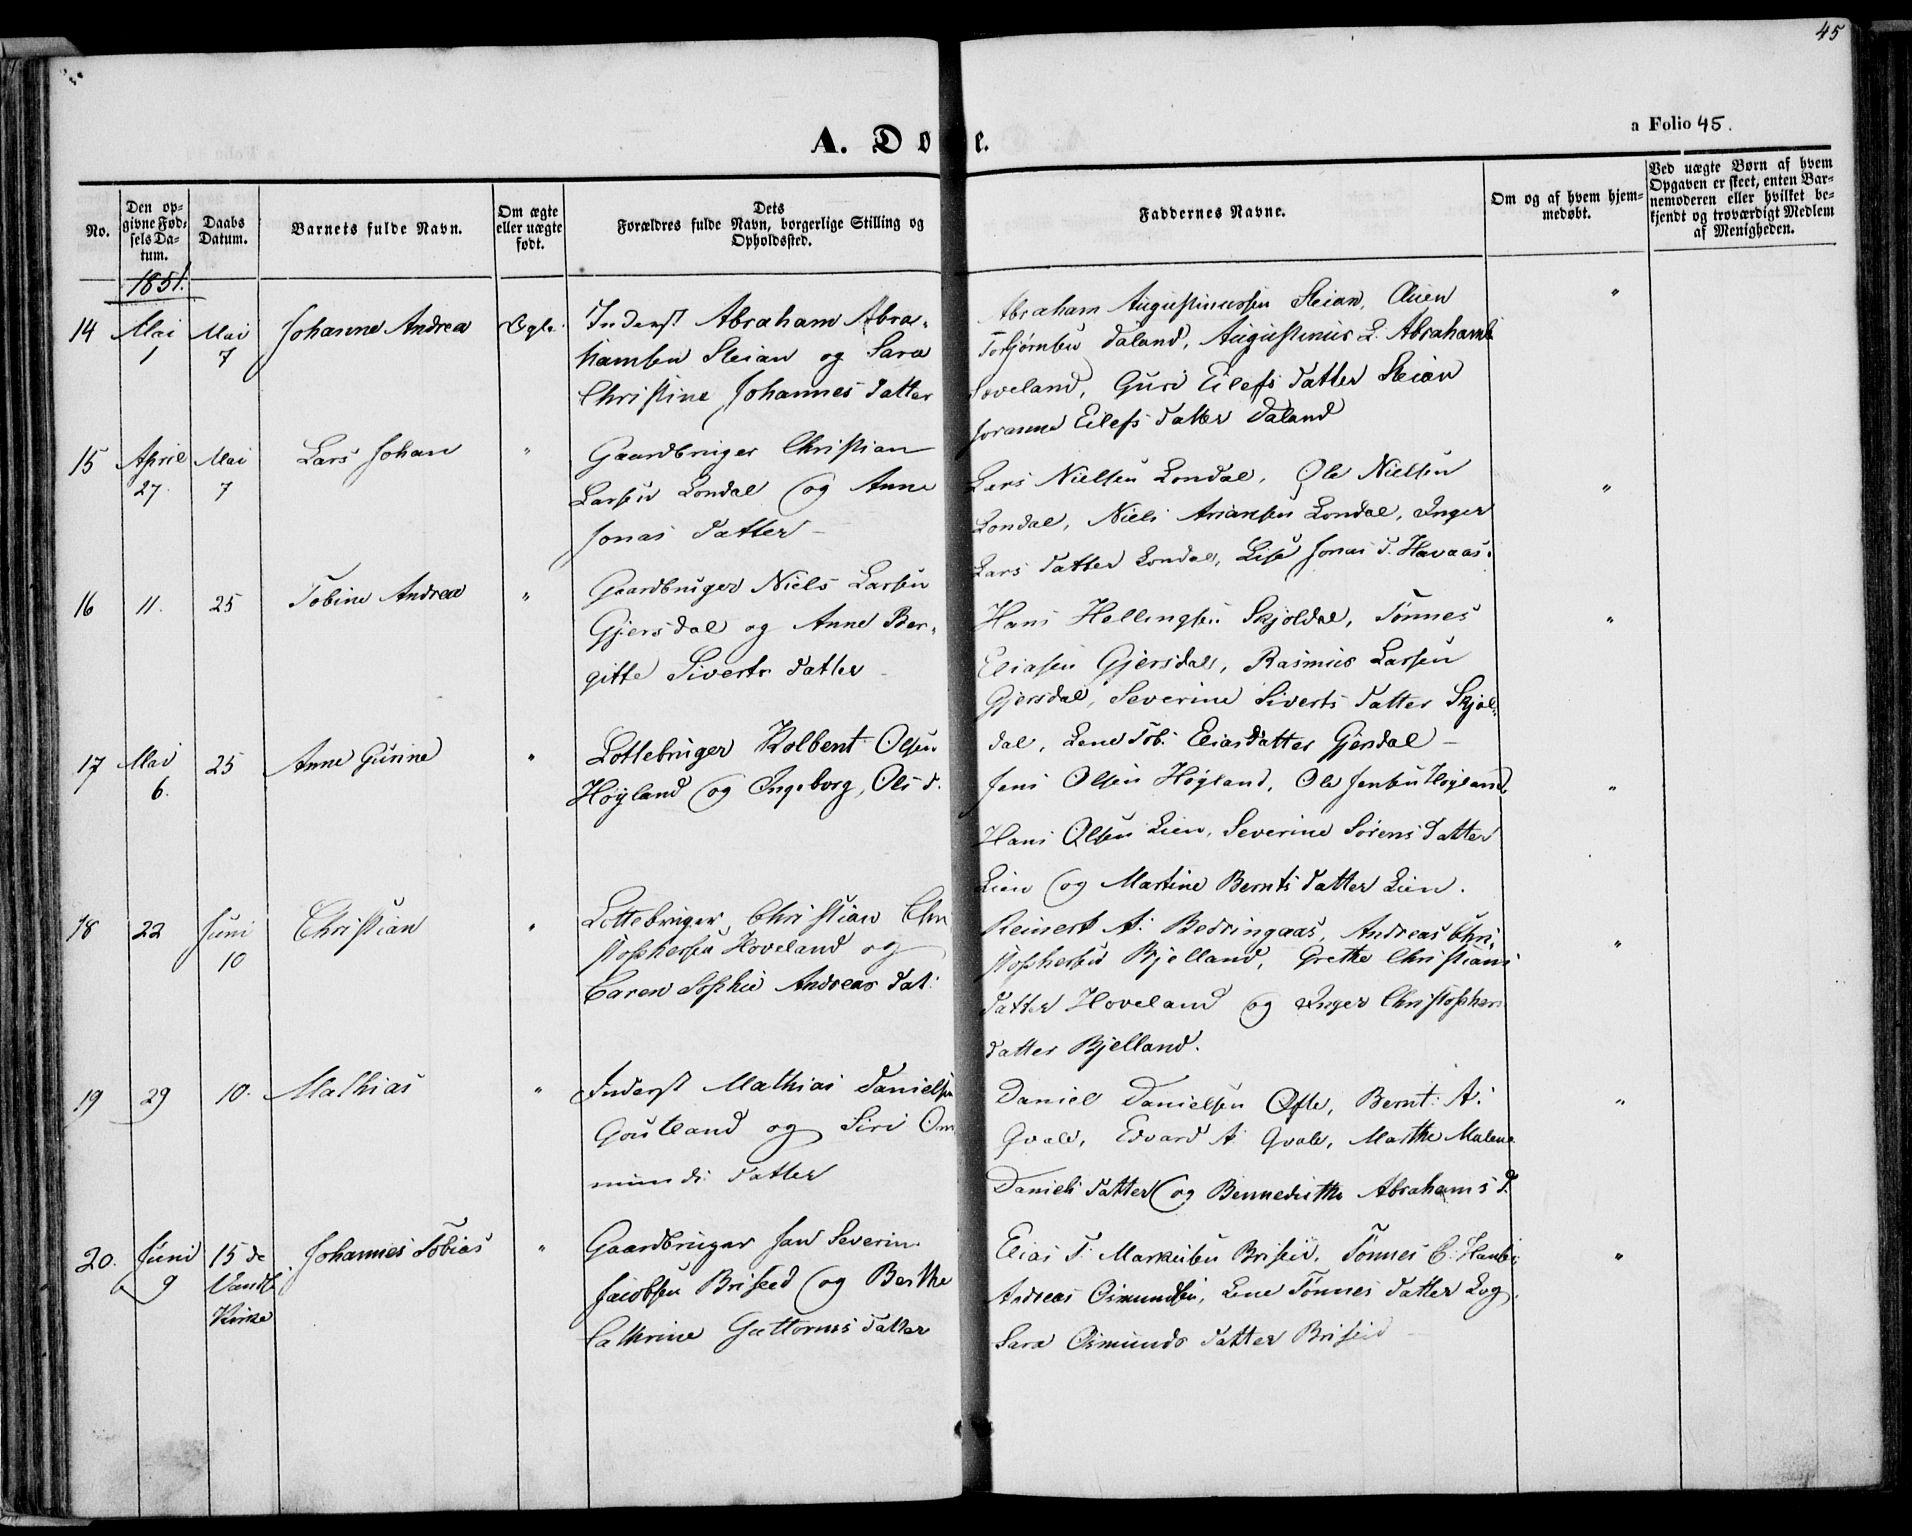 45
A. Do e.
a Folio 45.
No.
Den op-
givne Fød-
sels Da-
tum.
Daabs
Datum.
Barnets fulde Navn.
Om ægte
eller uægte
født.
Dets
Forældres fulde Navn, borgerlige Stilling og
Opholdssted.
Faddernes Navne.
Om og af hvem hjem-
medøbt.
Ved uægte Børn af hvem
Opgaven er skeet, enten Bar-
nemoderen eller hvilket be-
kjendt og troværdigt Medlem
af Menigheden.
1851.
14 Mai 1 Mai 7 Johanne Andrea Ægte. Inderst Abraham Abra-
hamsen Steian og Sara
Christine Johannes Datter
Abraham Augustinussen Steian,
Torbjørnsen Daland, Augustinus L. Abrahams
Soveland, Guri Eilefs Datter Steian
Eilefs Datter Daland
15 April 27. Mai 7 Lars Johan " Gaardbruger Christian
Larsen Londal og Anne
Jonas Datter
Lars Nielsen Londal, Ole Nielsen
Londal, Niels Ariansen Londal, Inger
Lars Datter Londal, Lise Jonas D. Havaas. "
16 11. 25 Tobine Andrea " Gaardbruger Niels Larsen
Gjersdal og Anne Ber-
gitte Siverts Datter
Hans Hellingsen Skjoldal, Tønnes
Eliasen Gjersdal, Rasmus Larsen
Gjersdal, Severine Siverts Datter Skjol-
dal, Lene Tob. Eliasdatter Gjersdal "
17 Mai 6. 25 Anne Gurine " Lottebruger Kolbent Olsen
Høyland og Ingeborg, Ols d.
Jens Olsen Høyland, Ole Jensen Høyland,
Hans Olsen Lien, Severine Sørens Datter
Lien og Martine Bernts Datter Lien. "
18 22 Juni 10 Christian " Lottebruger Christian Chri
stophersen Hoveland og
Caren Sophie Andreas Dat:
Reinert A. Bedringaas, Andreas Chri-
stophersen Bjelland, Grethe Christians
Datter Hoveland og Inger Christophers
datter Bjelland. "
19 29 10. Mathias " Inderst Mathias Danielsen
Goutland og Siri Om
munds Datter
Daniel Danielsen Øfte, Bernt A.
Qvale, Edvard A. Qvale, Marthe Malene
Daniels Datter og Bennedicthe Abrahams D. "
20. Juni 9 15 de
Vandse
Kirke Johannes Tobias " Gaardbruger Jan Severin
Jacobsen Briseid og Berthe
Cathrine Guttorms Datter
Elias T. Markusen Briseid, Tønnes C.
Andreas Osmundsen, Lene Tønnes Datter
Sara Osmunds Datter Briseid "